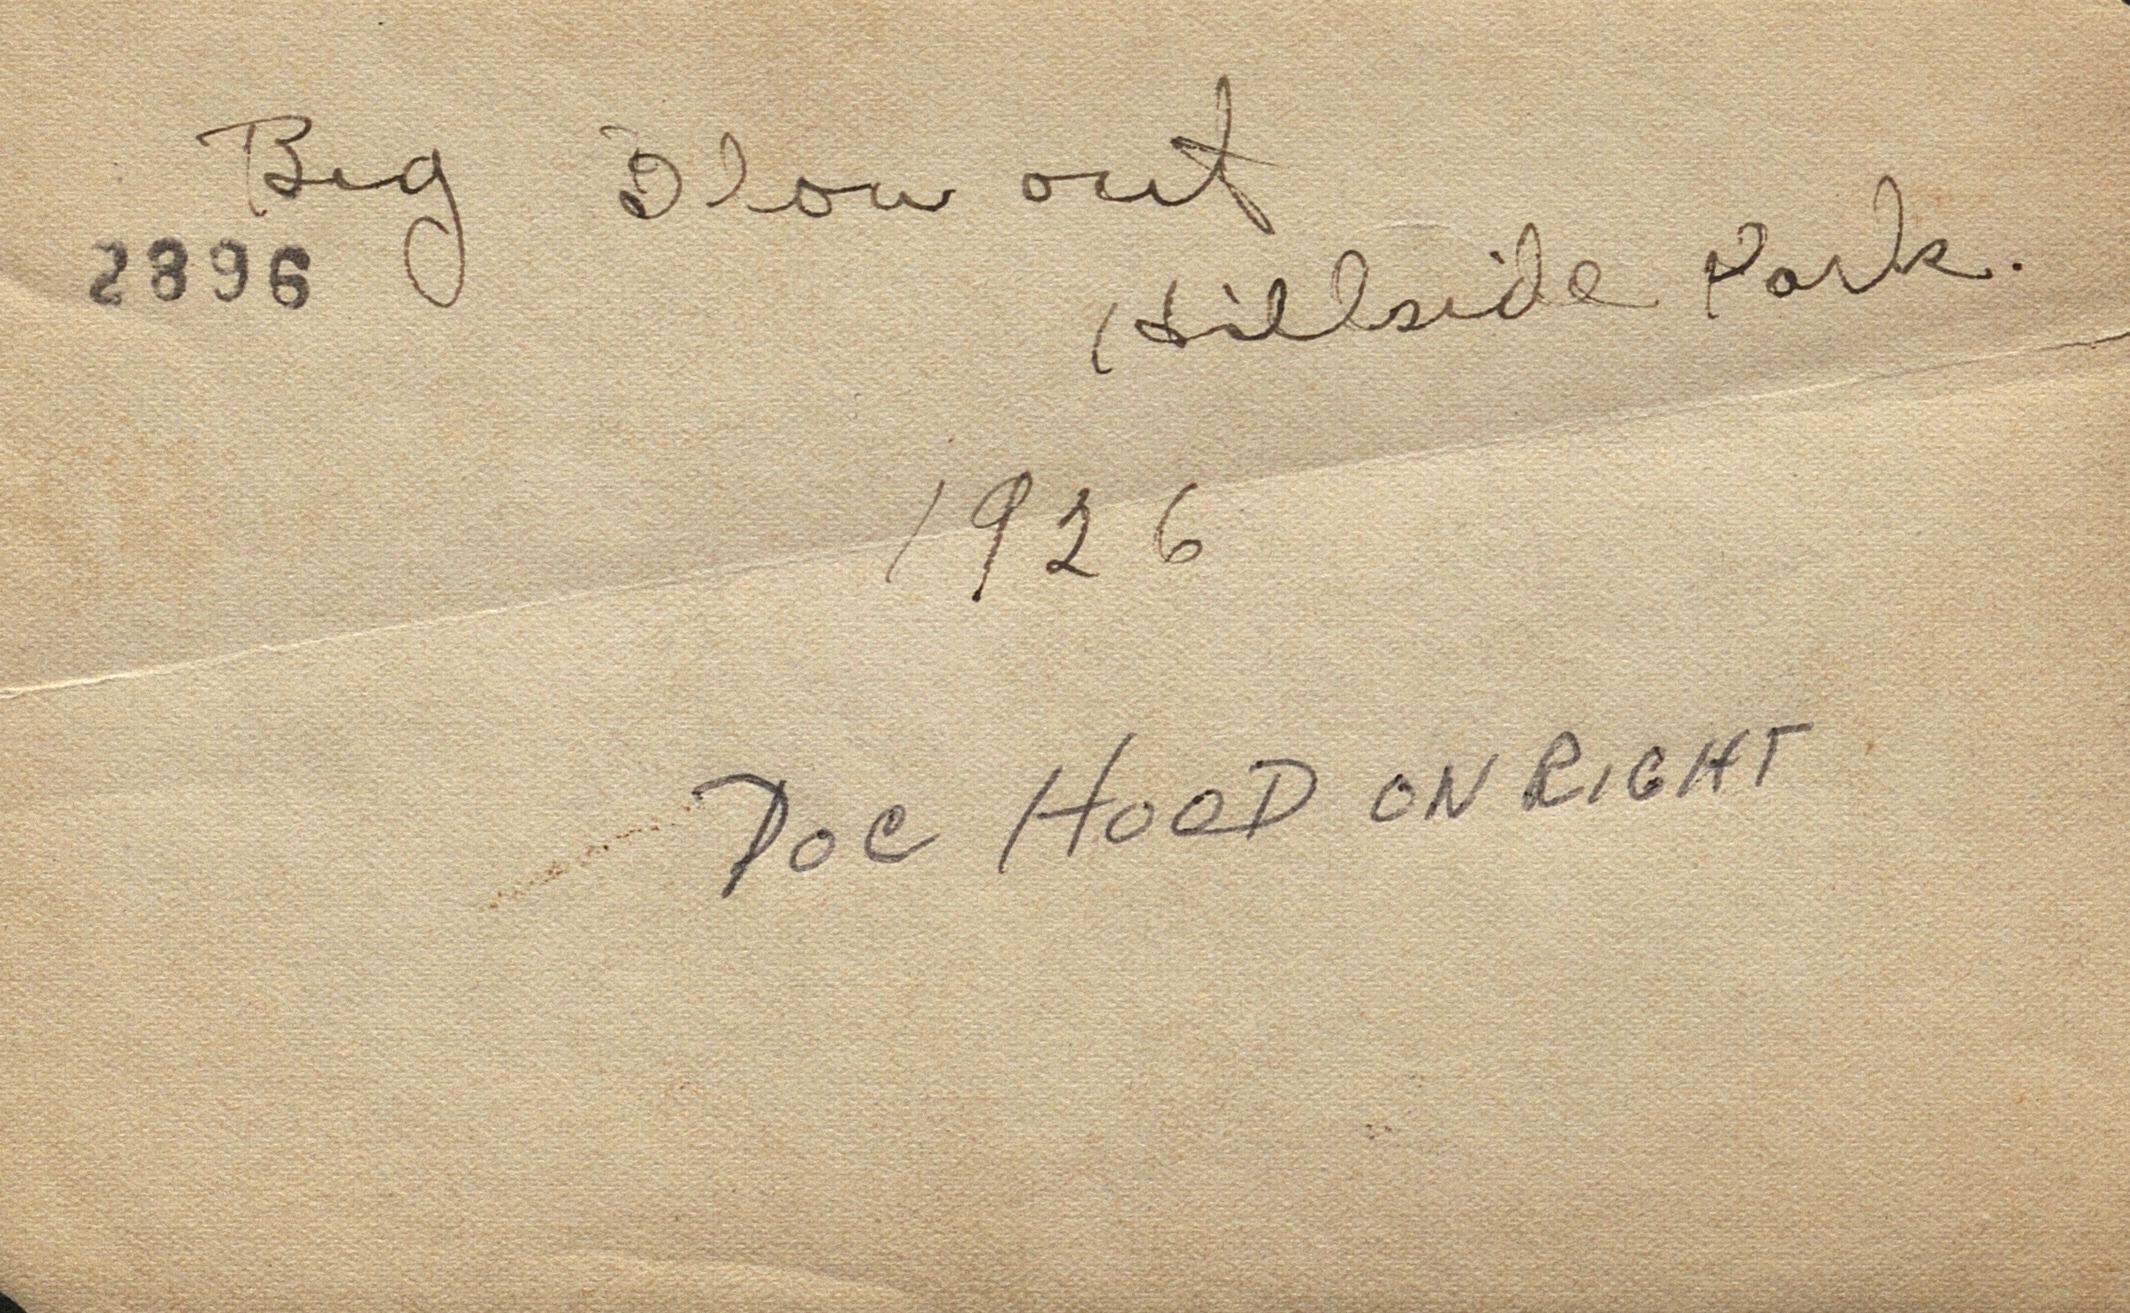 Big Blow out
2896
Hillside Park.
1926
DOC HOOD ON RIGHT